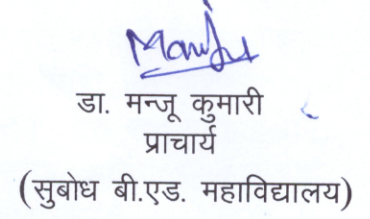 Manju
डा. मन्जू कुमारी
प्राचार्य
(सुबोध बी.एड. महाविद्यालय)